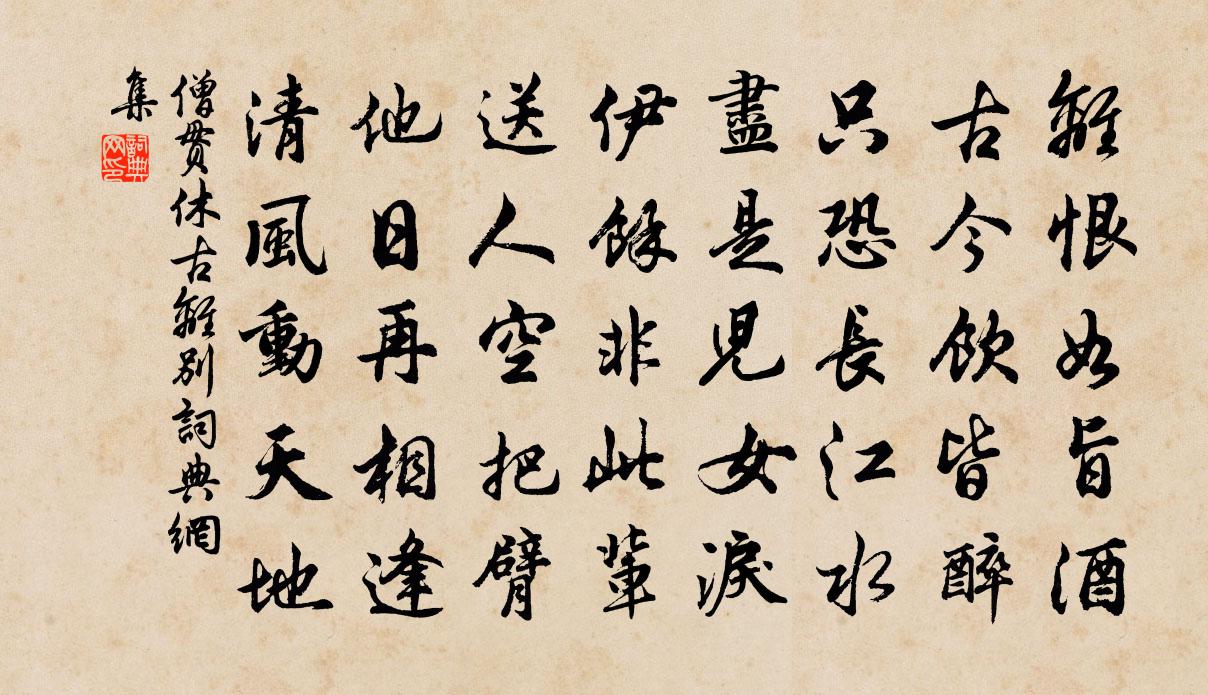 離恨如旨酒
古今飲皆醉
只恐長江水
盡是兒女淚
伊餘非此輩
送人空把臂
他日再相逢
清風動天地
僧貫休古離別詞典網
集
詞典網印